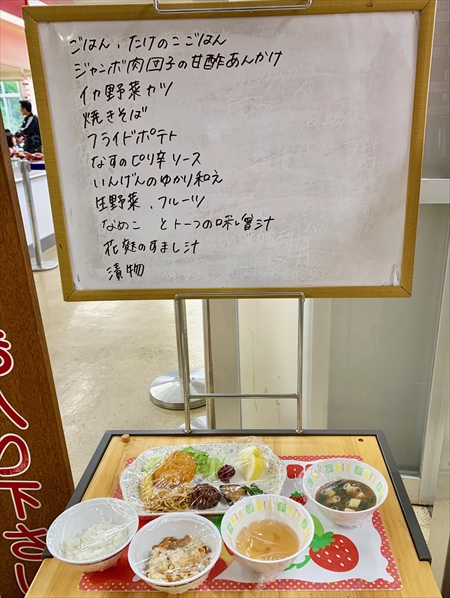 ごはん、たけのこごはん
ジャンボ肉団子の甘酢あんかけ
イカ野菜カツ
焼きそば
フライドポテト
なすのピリ辛ソース
いんげんのゆかり和え
生野菜、フルーツ
なめこ とトーフの味噌汁
花麩のすまし汁
漬物
下さい